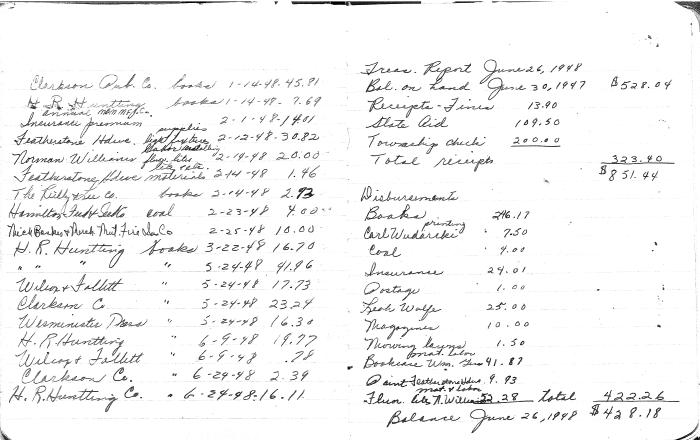 Clarkson Pub. Co. books 1-14-48. 45.81
H R Huntting books 1-14-48- 7.69
annual
Insurance premium 2-1-48- 1401
supplies
Featherstone Hdwe. light fixtures 2-12-48- 30.82
labor installing
Norman Williams 2-14-48 20.00
Featherstone Hdwe materials 2-14-48 1.46
The Reilly & Lee Co. books 2-14-48 2.93
Hamilton Feed & Seeds coal 2-23-48 4.00
Mut. Fire Ins Co 2-25-48 10.00
H. R. Huntting books 3-22-48 16.70
" " " " 5-24-48 41.96
Wilcox & Follett " 5-24-48 17.73
Clarkson Co " 5-24-48 23.24
Westminister Press " 5-24-48 16.30
H. R Huntting " 6-9-48 19.77
Wilcox & Follett " 6-9-48 .78
Clarkson Co. " 6-24-48 2.39
H. R. Huntting Co. " 6-24-48-16.11
Treas. Report June 26, 1948
Bal. on hand June 30, 1947 $528.04
Receipts - Fines 13.90
State Aid 109.50
Township check 200.00
Total receipts 323.40
$851.44
Disbursements
Books 216.17
printing
Carl Wudarski 7.50
Coal 4.00
Insurance 24.01
Postage 1.00
Leah Wolfe 25.00
Magazines 10.00
Mowing lawns 1.50
mat. labor
Bookcase Wm. 41.87
Paint Featherstone Hdwe. 9.93
mat. & labor
Flum. lite N. Williams 52.28 total 422.26
Balance June 26, 1948 $428.18